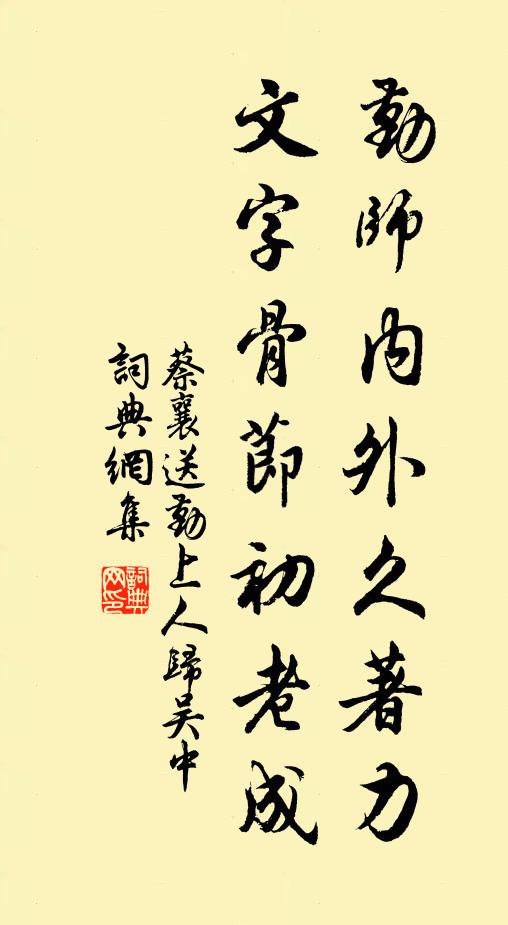 勤師內外久著力
文字骨節初老成
蔡襄送勤上人歸吳中
詞典網集
詞典
网印